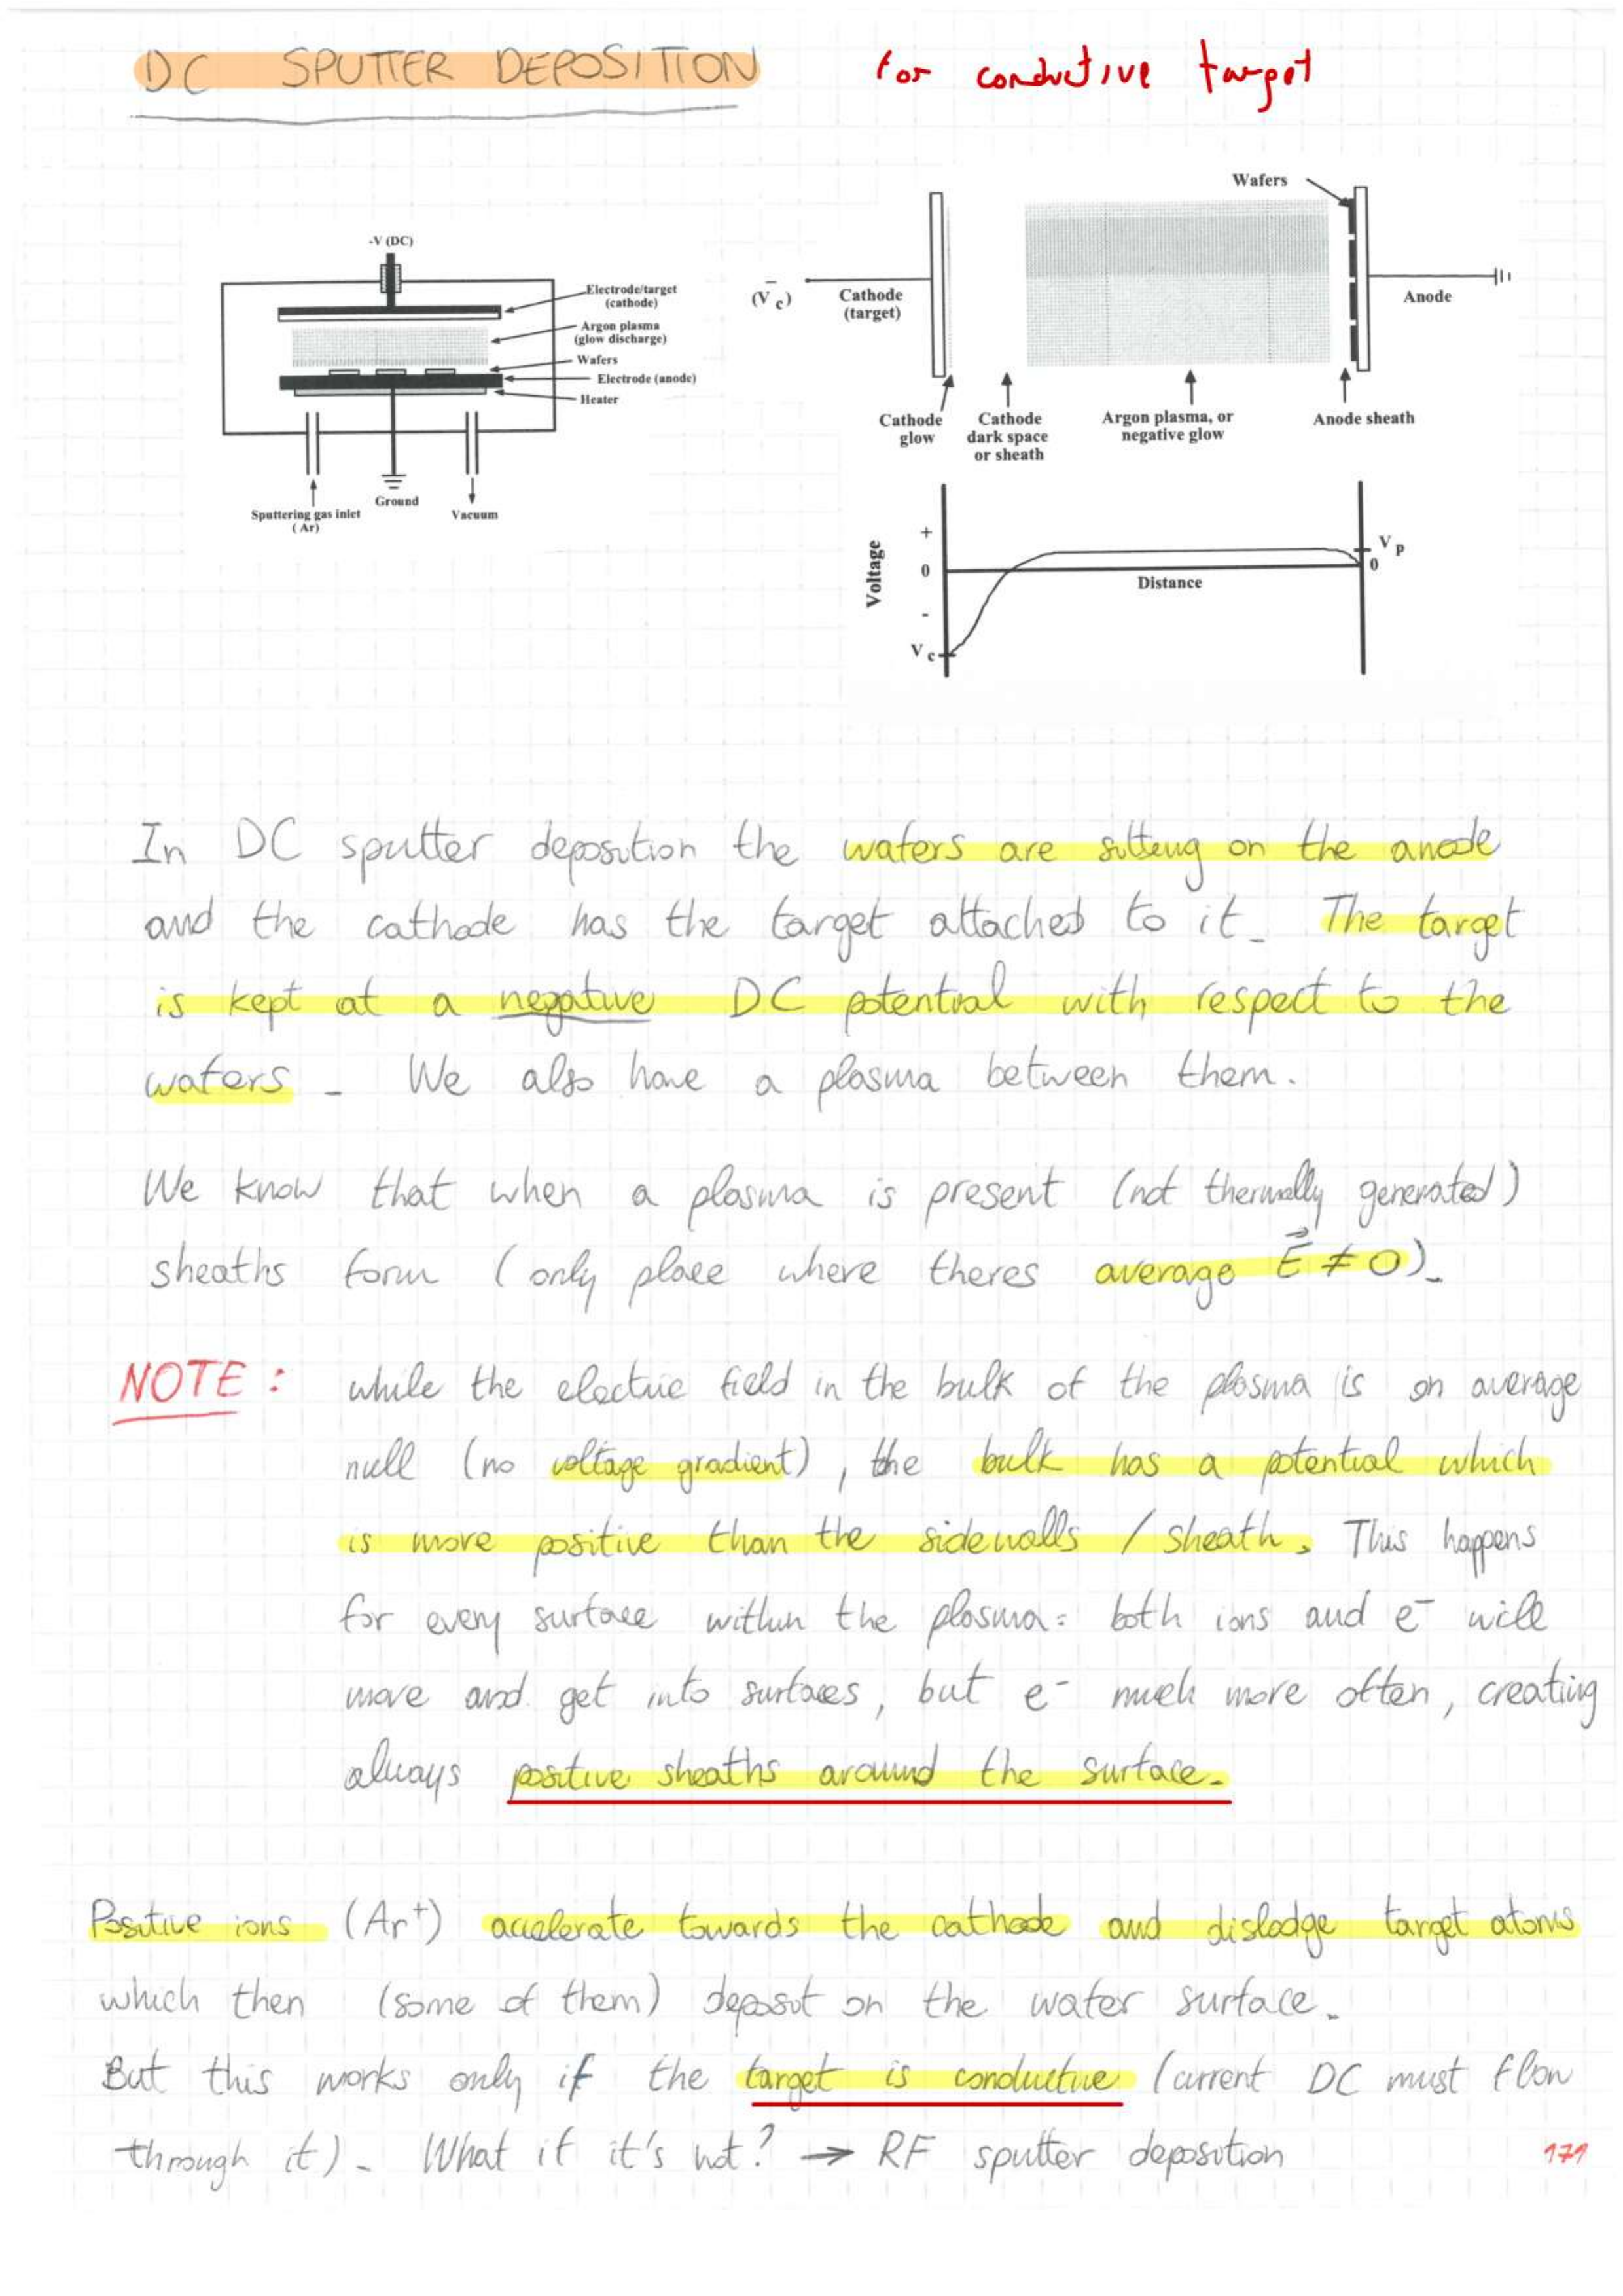 DC SPUTTER DEPOSITION for conductive target
-V (DC)
Electrode/target
(cathode)
Argon plasma
(glow discharge)
Wafers
Electrode (anode)
Heater
Sputtering gas inlet
(Ar)
Ground
Vacuum
Wafers
(V̄c)
Cathode
(target)
Anode
Cathode
glow
Cathode
dark space
or sheath
Argon plasma, or
negative glow
Anode sheath
Voltage
+
0
-
Vc
Distance
Vp
0
In DC sputter deposition the wafers are sitting on the anode
and the cathode has the target attached to it. The target
is kept at a negative DC potential with respect to the
wafers. We also have a plasma between them.
We know that when a plasma is present (not thermally generated)
sheaths form (only place where theres average E⃗ ≠ 0).
NOTE: while the electric field in the bulk of the plasma is on average
null (no voltage gradient), the bulk has a potential which
is more positive than the sidewalls / sheath. This happens
for every surface within the plasma: both ions and e⁻ will
move and get into surfaces, but e⁻ much more often, creating
always positive sheaths around the surface.
Positive ions (Ar⁺) accelerate towards the cathode and dislodge target atoms
which then (some of them) deposit on the wafer surface.
But this works only if the target is conductive (current DC must flow
through it). What if it's not? → RF sputter deposition
171